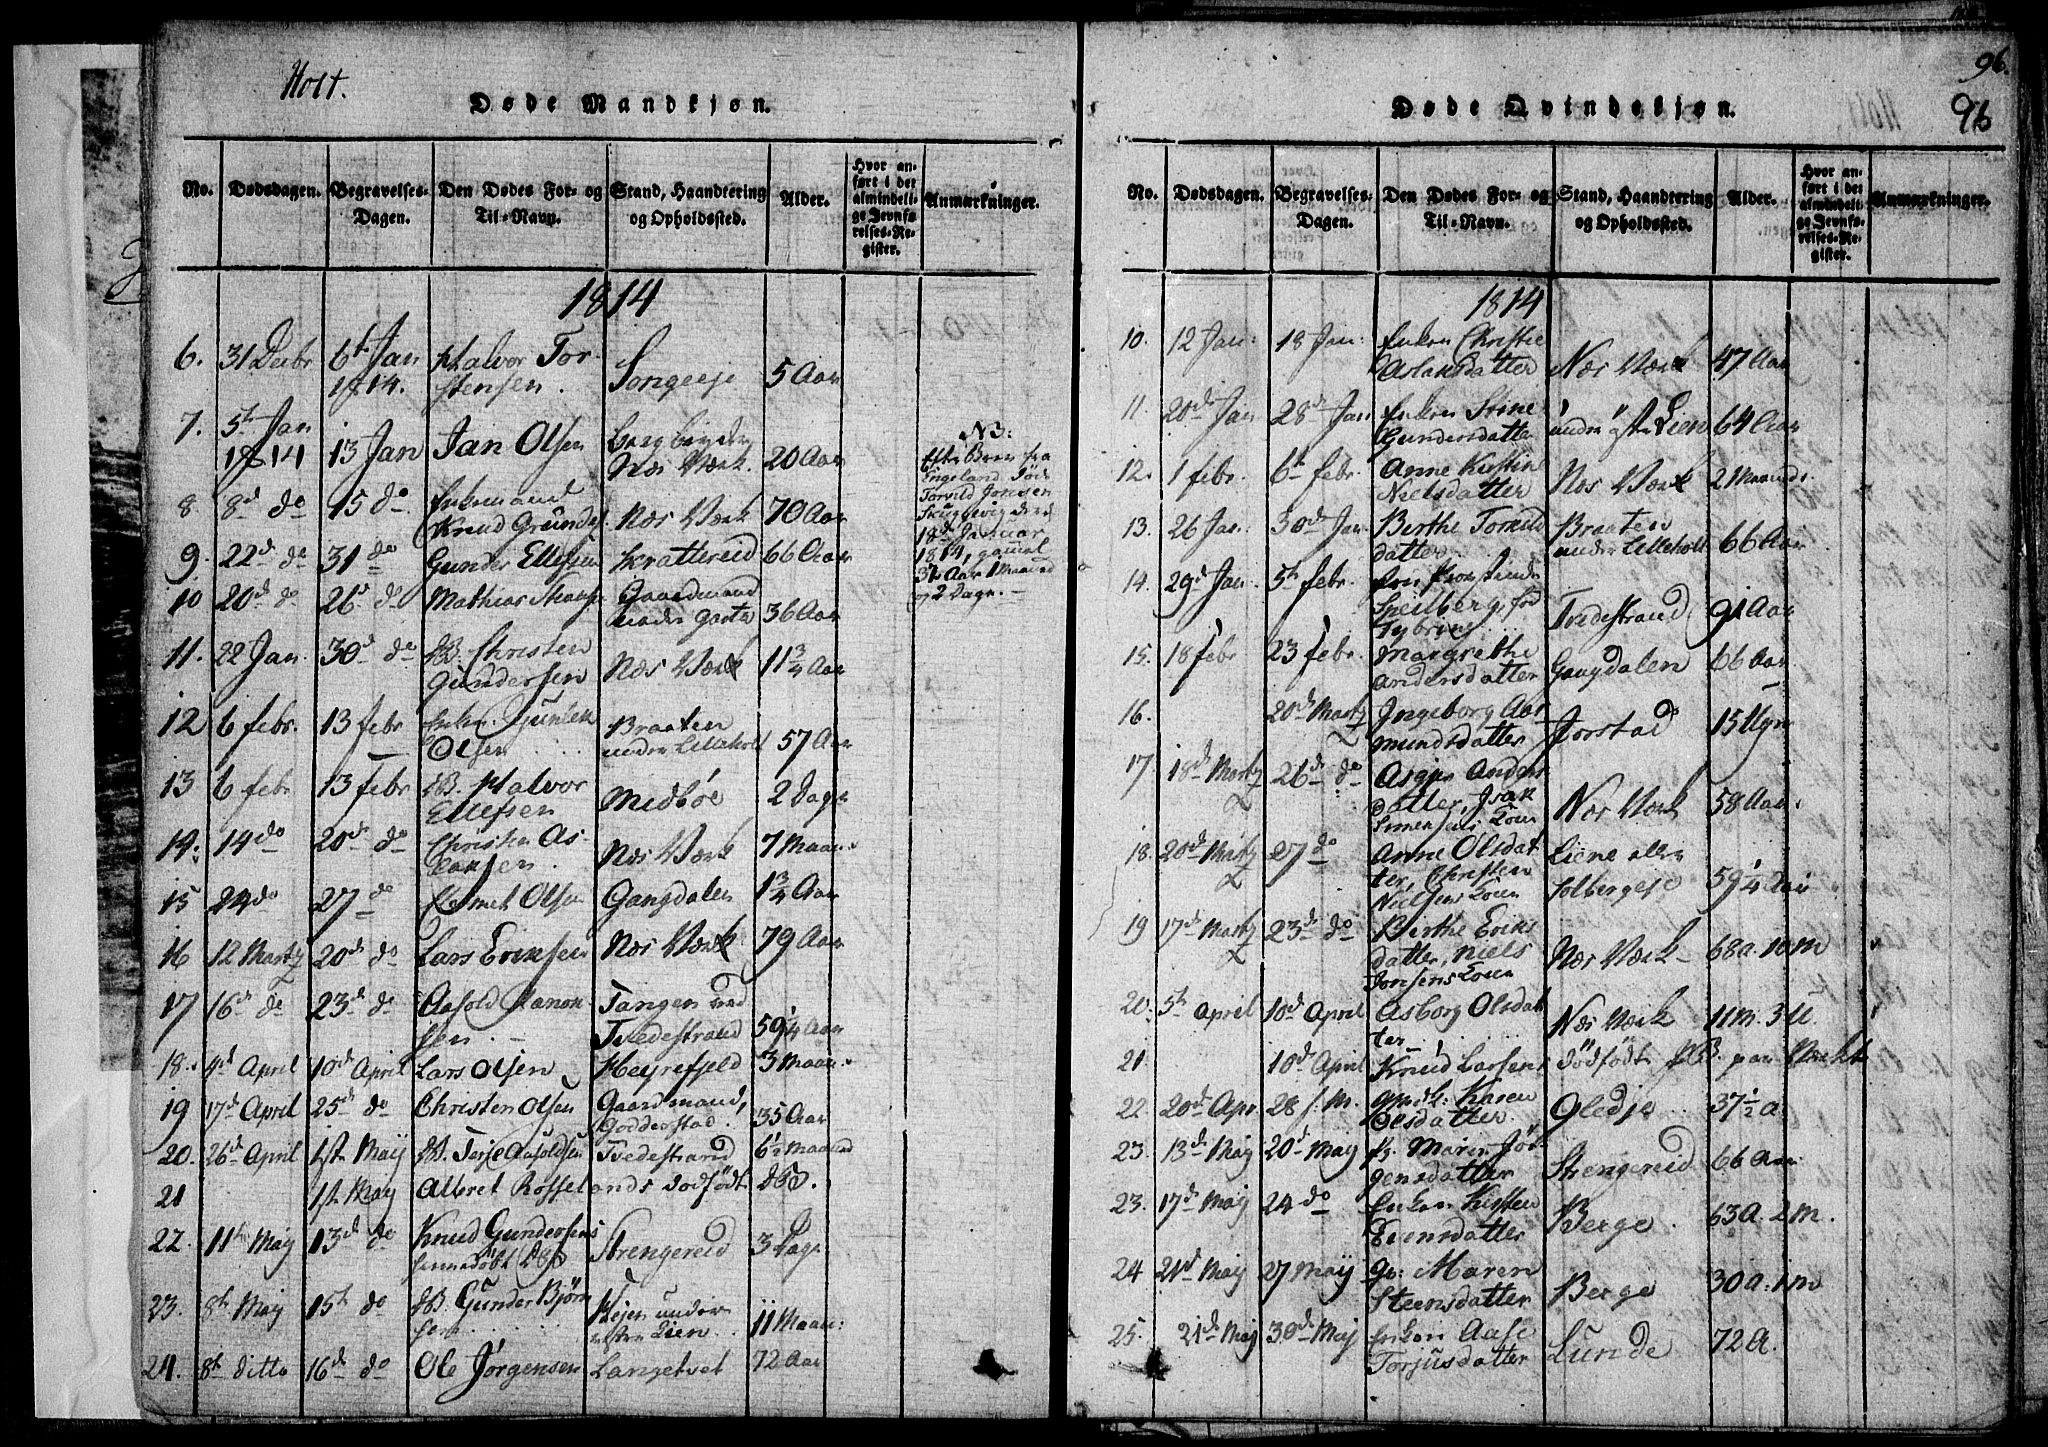 Holt.
Døde Mandkjøn.
No. Dødsdagen. Begravelses-Dagen. Den Dødes For- og Til-Navn. Stand, Haandtering og Opholdssted. Alder. Hvor anført i det almindelige Jevnførelses-Register. Anmærkninger.
1814
6. 31 Decbr 6th Jan Halvor Tor-
1814. stensen. Songeeje 5 Aar
7. 5th Jan
1814 13 Jan Jan Olsen Næs Værk. 20 Aar
8 8d do 15 do. Enkemand
Knud Gunders. Næs Værk 70 Aar
9. 22d do 31 do Gunder Ellefsen Krattereid 66 Aar
10 20d do 26d do Mathias Gaardmand
under 36 Aar
NB:
Efter Brev fra
Engeland Død
Torvild Jonsen
Skuglevig den
18de Januar
1814, gamel
31 Aar 1 Maaned
og 2 Dage.
11. 22 Jan. 30d do DB. Christen
Gundersen Næs Værk 1 1/4 Aar
12 6 febr. 13 febr Enkem. Gunlek Braaten
Olsen under Lilleholt 57 Aar
13 6 febr 13 febr DB. Halvor
Ellefsen Midbøe 2 Dage
14. 14 do 20d do Christen As-
laksen. Næs Værk 7 Maan:
15 24 do 27 do Olsen Gangdalen 1 3/4 Aar
16 12 Marty 20d do Lars Eriksen Næs Værk 79 Aar
17 16d do 23d do Aasold Aanon- Tangen ved
sen. Tvedestrand 59 1/4 Aar
18. 4d April 10d April Lars Olsen Heyrefjeld 3 Maan:
19 17d April 25d do Christen Olsen Gaardmand,
Godderstad. 35 Aar
20. 26d April 1ste Maij DB. Terje Aasoldsen Tvedestrand 6 1/2 Maaned
21 1st May Albret Rossel ands dødfødt DB.
22. 11th May 13d do Knud Gundersens
Strengereid 3 Dage
23. 8th Maij 15th do DB. Gunder Bjørn- Hejen under
sen. Lien. 11 Maan:
24. 8th ditto 16d do Ole Jörgensen Langetvet 72 Aar
96.
96
Døde Qvindekjøn.
No. Dødsdagen. Begravelses-Dagen. Den Dødes For- og Til-Navn. Stand, Haandtering og Opholdssted. Alder. Hvor anført i det almindelige Jevnførelses-Register. Anmærkninger.
1814
10. 12 Jan: 18 Jan: Enken Christie
Aslaksdatter Næs Værk 47 Aar
11. 20d Jan 28d Jan Enken Stine
Gundersdatter under østre Lien 64 Aar
12. 1 febr. 6th febr. Anne Kirstine
Nielsdatter Næs Værk 2 Maaneds.
13. 26 Jan. 30d Jan Berthe Torkild Braaten
datter under Lilleholt 66 Aar
14. 29d Jan. 5th febr.
Speilberg, fød
Tybring Tvedestrand 91 Aar
15. 18 febr 23 febr. Margrethe
Andersdatter Gangdalen 66 Aar
16. 20d Marty Ingeborg Aa-
mundsdatter Jorstad 15 Uger
17. 18d Marty 26d do Anders
datter, Isak
Simensens Koen Næs Værk 58 Aar.
18. 20d Marty 27 do Anne Olsdat- Liene eller
ter, Christen
Nielsens Koen Solbergeje 59 1/4 Aar
19 17d Marty 23d do Berthe Eriks
datter, Niels
Jonsens Koen Næs Værk 68 a. 10 m
20. 5th April 10d April Asborg Olsdat-
ter Næs Værk 11 m. 3 U.
21. 10d April Knud Larsens dødfødt PB. paa Værket
22. 20d Apr. 28 s. M. Karen
Olesdatter. Gledje 37 1/2 a.
23. 13d Maij 20d May Maren Jör-
gensdatter Strengereid 66 Aar
23. 17d Maij 24 do Enken Kirsten
Evensdatter Berge 63 a. 2 m.
24 21d Maij 27 Maij Maren
Steensdatter Berge 30 a. 1 m
25. 21d Maj 30d Maij Enken Aase
Torjusdatter Lunde 72 A.